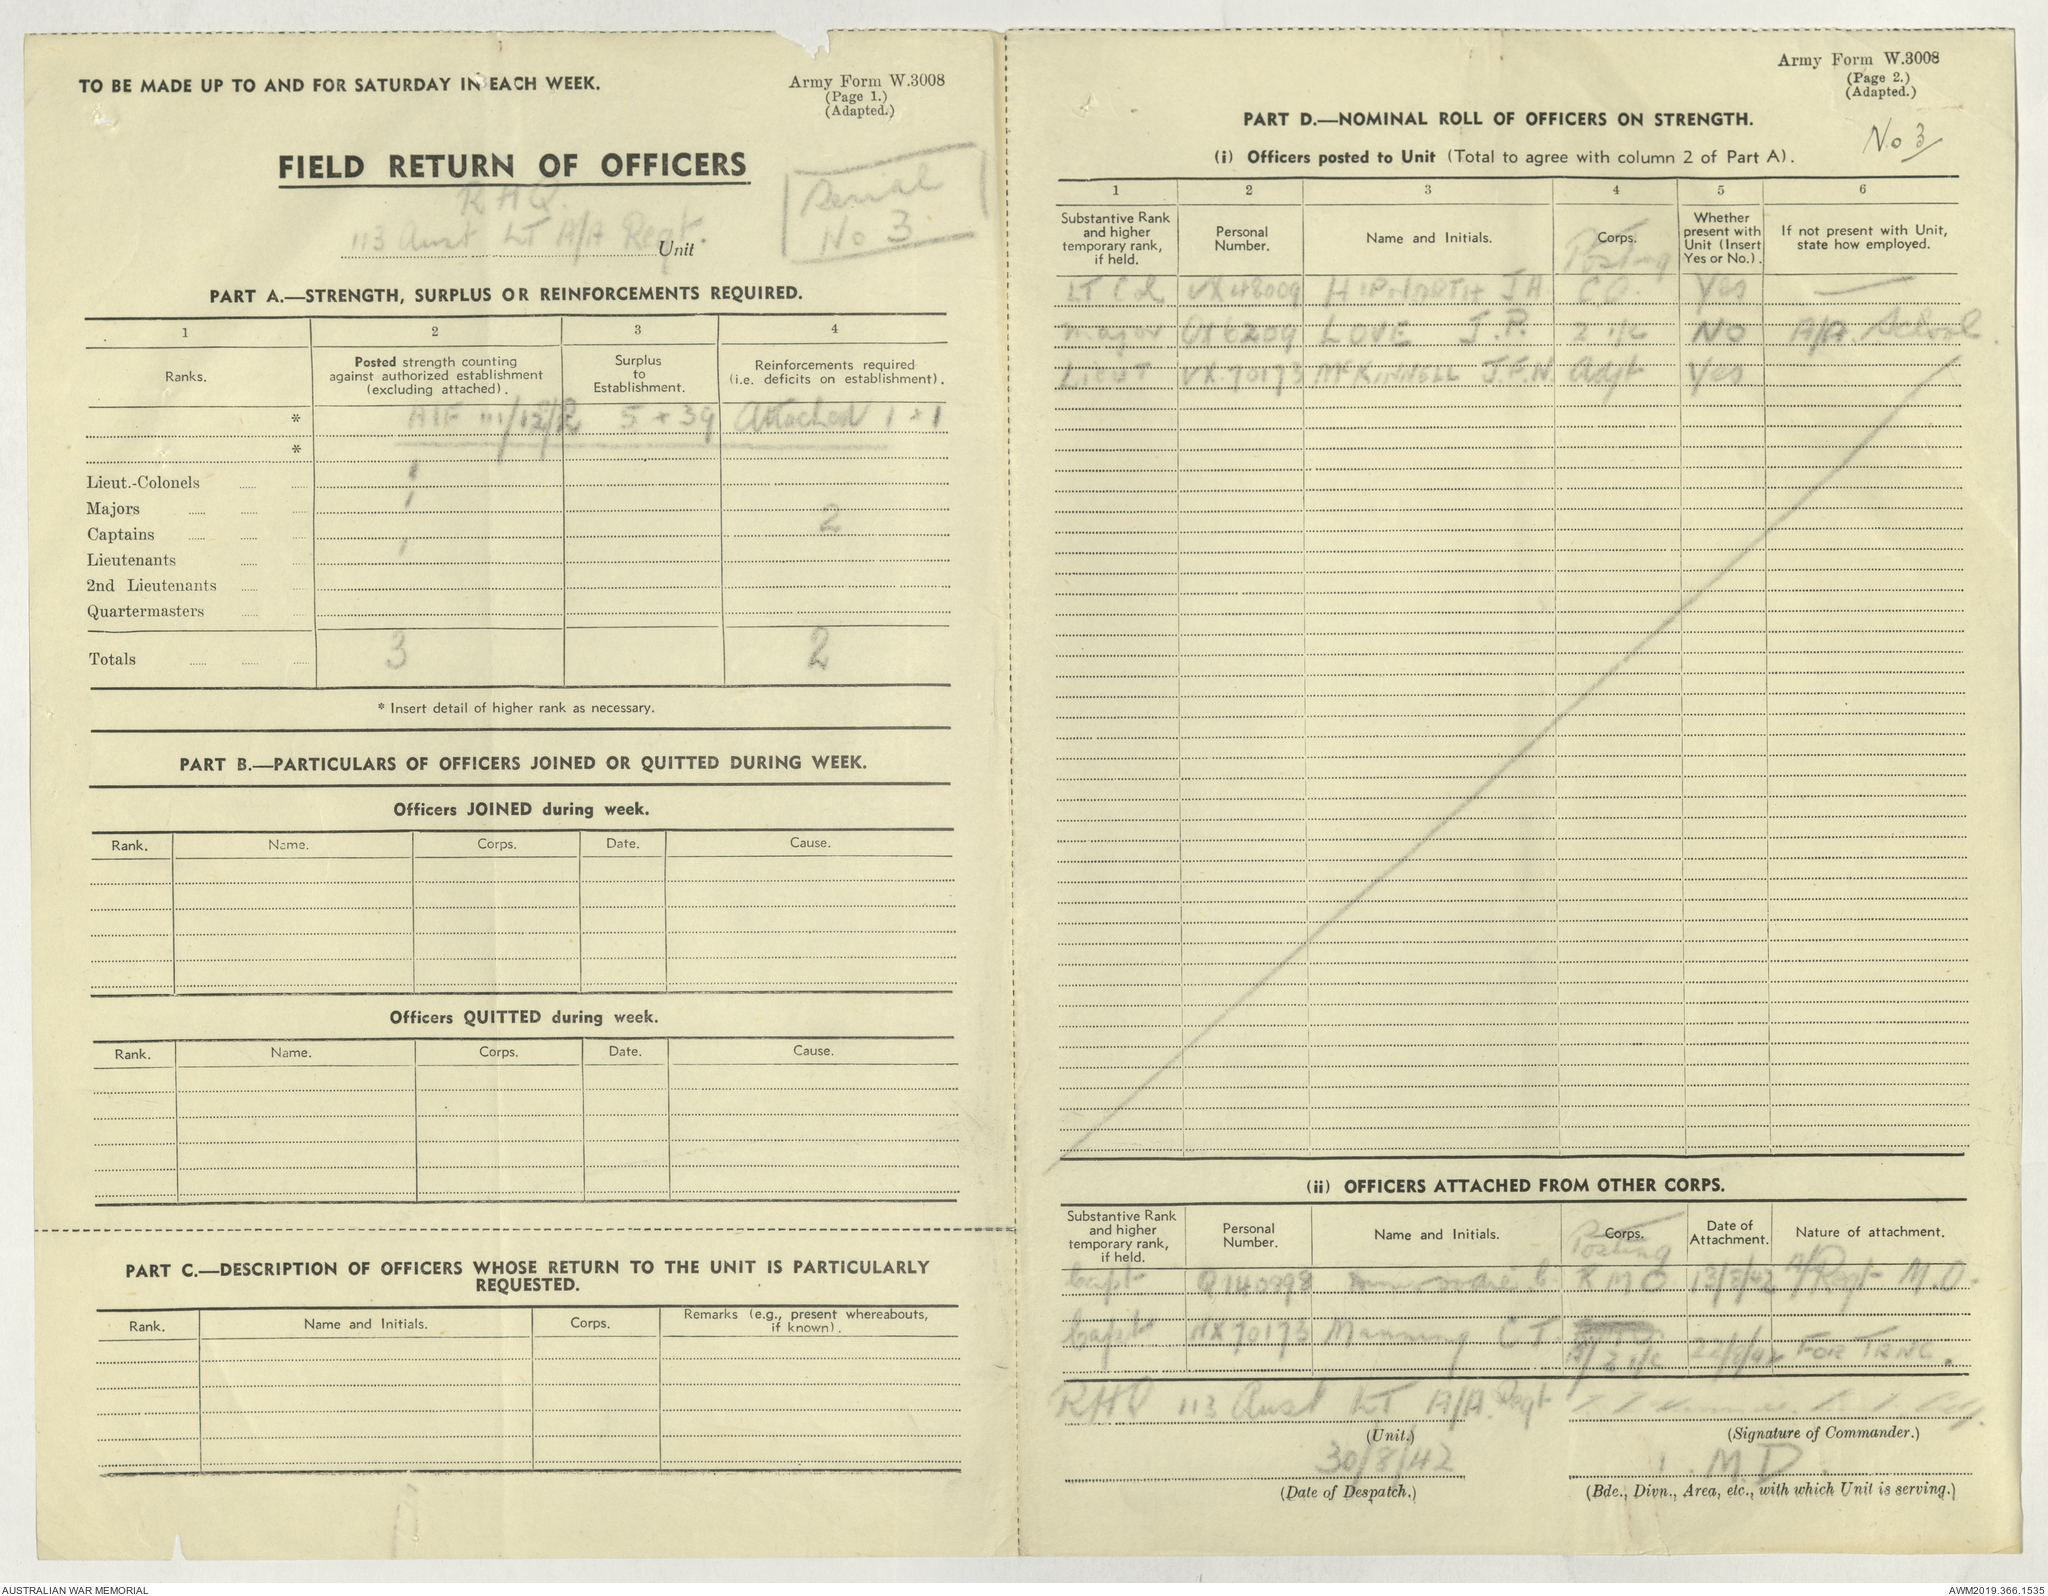 TO BE MADE UP TO AND FOR SATURDAY IN EACH WEEK.
Army Form W.3008
(Page 1.)
(Adapted.)
FIELD RETURN OF OFFICERS
Serial
No 3
R H Q.
113 Aust LT A/A Regt. Unit
PART A.—STRENGTH, SURPLUS OR REINFORCEMENTS REQUIRED.
1 2 3 4
Ranks. Posted strength counting against authorized establishment (excluding attached). Surplus to Establishment. Reinforcements required (i.e. deficits on establishment).
* AIF 111/12/2 5 + 39 Attached 1 + 1
*
Lieut.-Colonels 1
Majors 1
Captains 2
Lieutenants 1
2nd Lieutenants
Quartermasters
Totals 3 2
* Insert detail of higher rank as necessary.
PART B.—PARTICULARS OF OFFICERS JOINED OR QUITTED DURING WEEK.
Officers JOINED during week.
Rank. Name. Corps. Date. Cause.
Officers QUITTED during week.
Rank. Name. Corps. Date. Cause.
PART C.—DESCRIPTION OF OFFICERS WHOSE RETURN TO THE UNIT IS PARTICULARLY
REQUESTED.
Rank. Name and Initials. Corps. Remarks (e.g., present whereabouts, if known).
Army Form W.3008
(Page 2.)
(Adapted.)
PART D.—NOMINAL ROLL OF OFFICERS ON STRENGTH.
No 3
(i) Officers posted to Unit (Total to agree with column 2 of Part A).
1 2 3 4 5 6
Substantive Rank and higher temporary rank, if held. Personal Number. Name and Initials. Corps. Posting Whether present with Unit (Insert Yes or No.). If not present with Unit, state how employed.
LT Col VX48009 HIPWORTH J.H. CO. Yes —
Major QX6209 LOVE J.P. 2 i/c NO A/A. School.
Lieut VX 70173 McKINNELL J.F.N. Adjt Yes
(ii) OFFICERS ATTACHED FROM OTHER CORPS.
Substantive Rank and higher temporary rank, if held. Personal Number. Name and Initials. Corps. Posting Date of Attachment. Nature of attachment.
Capt Q140898 R M O 13/8/42 A/Regt M.O.
Capt NX70173 Manning C T. A/2 i/c 22/8/42 FOR TRNG.
RHQ 113 Aust LT A/A. Regt
(Unit.)
(Signature of Commander.)
30/8/42
(Date of Despatch.)
1. M.D.
(Bde., Divn., Area, etc., with which Unit is serving.)
AUSTRALIAN WAR MEMORIAL
AWM2019.366.1535